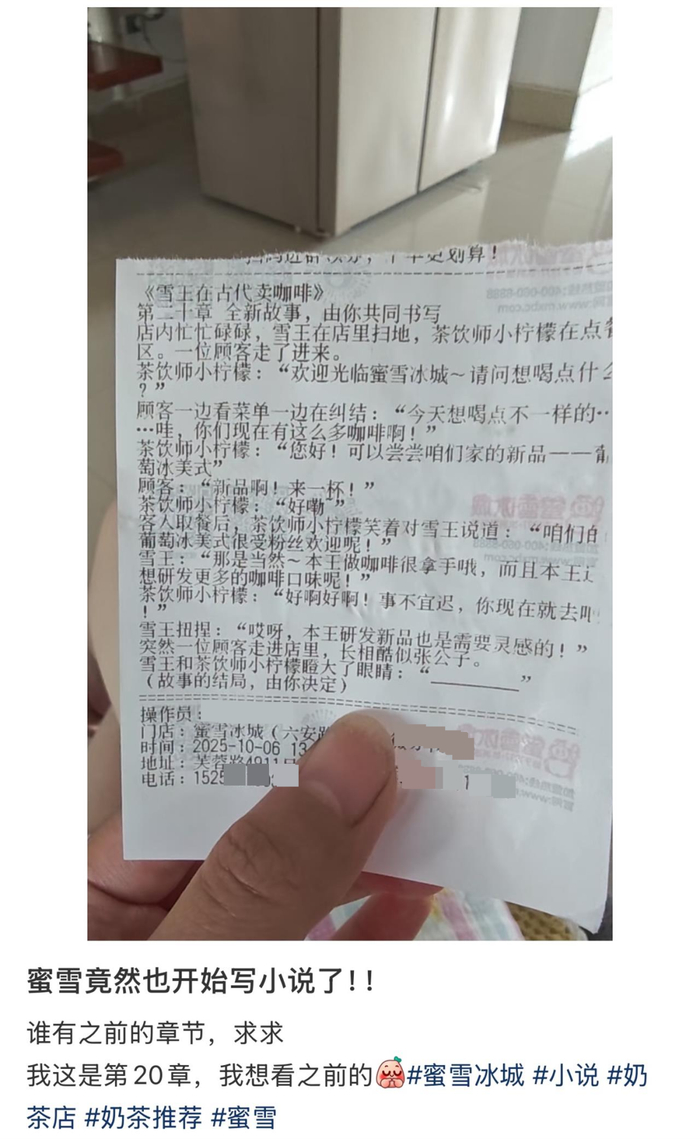 扫码进群领券，下单更划算！
《雪王在古代卖咖啡》
第二十章 全新故事，由你共同书写
店内忙忙碌碌，雪王在店里扫地，茶饮师小柠檬在点餐
区。一位顾客走了进来。
茶饮师小柠檬：“欢迎光临蜜雪冰城～请问想喝点什么
？”
顾客一边看菜单一边在纠结：“今天想喝点不一样的…
…哇，你们现在有这么多咖啡啊！”
茶饮师小柠檬：“您好！可以尝尝咱们家的新品——葡
萄冰美式”
顾客：“新品啊！来一杯！”
茶饮师小柠檬：“好嘞”
客人取餐后，茶饮师小柠檬笑着对雪王说道：“咱们的
葡萄冰美式很受粉丝欢迎呢！”
雪王：“那是当然～本王做咖啡很拿手哦，而且本王还
想研发更多的咖啡口味呢！”
茶饮师小柠檬：“好啊好啊！事不宜迟，你现在就去吧
！”
雪王扭捏：“哎呀，本王研发新品也是需要灵感的！”
突然一位顾客走进店里，长相酷似张公子。
雪王和茶饮师小柠檬瞪大了眼睛：“________”
（故事的结局，由你决定）
操作员：
门店：蜜雪冰城（六安路
时间：2025-10-06 13
地址：芙蓉路4911号
电话：1525 1
蜜雪竟然也开始写小说了！！
谁有之前的章节，求求
我这是第20章，我想看之前的#蜜雪冰城 #小说 #奶
茶店 #奶茶推荐 #蜜雪